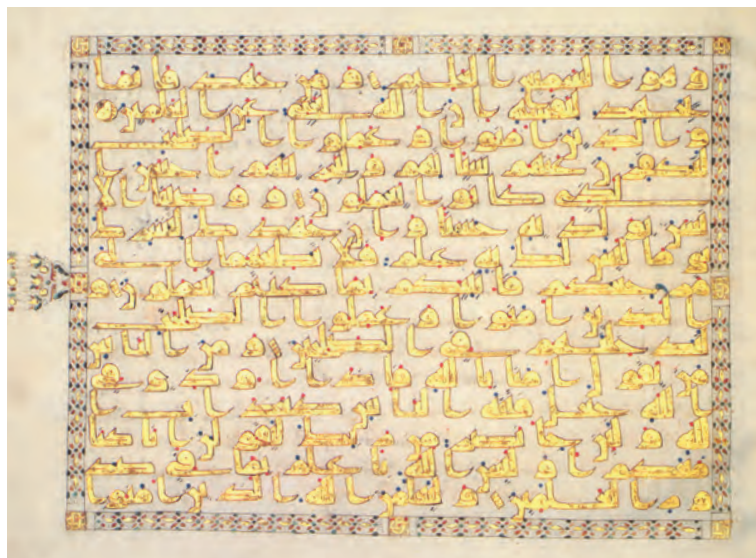 وهو السميع العليم ومن جهد فانما
يجهد لنفسه ان الله لغني عن العلمين
والذين امنوا وعملوا الصلحت
لنكفرن عنهم سياتهم ولنجزينهم احسن
الذي كانوا يعملون ووصينا الا
نسن بولديه حسنا وان جهداك لتشرك
بي ما ليس لك به علم فلا تطعهما الي
مرجعكم فانبئكم بما كنتم تعملون و
الذين امنوا وعملوا الصلحت
لندخلنهم في الصلحين ومن الناس
من يقول امنا بالله فاذا اوذي
في الله جعل فتنة الناس كعذاب
الله ولئن جا نصر من ربك ليقولن انا كنا
معكم اوليس الله باعلم بما في صد
ور العلمين وليعلمن الله الذين امنوا